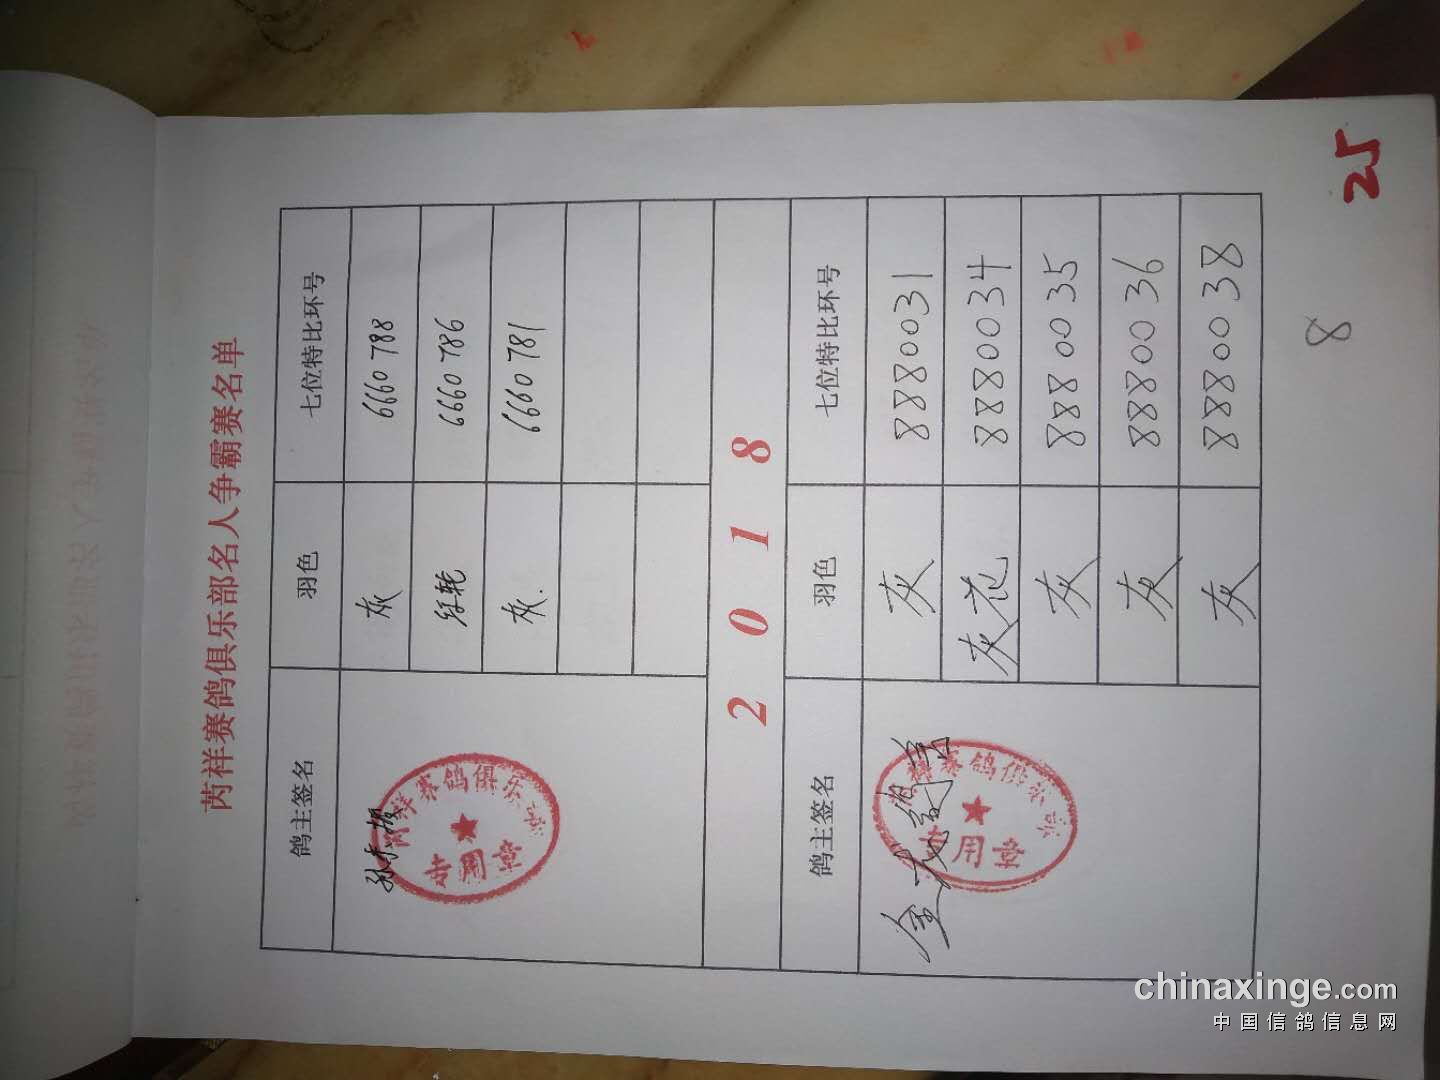 芮祥赛鸽俱乐部名人争霸赛名单
鸽主签名 羽色 七位特比环号
灰 6660788
6660786
灰. 6660781
芮祥赛鸽俱乐部
专用章
2018
鸽主签名 羽色 七位特比环号
灰 8880031
灰花 8880034
灰 8880035
灰 8880036
灰 8880038
祥赛鸽俱乐部
专用章
8
25
chinaxinge.com
中国信鸽信息网